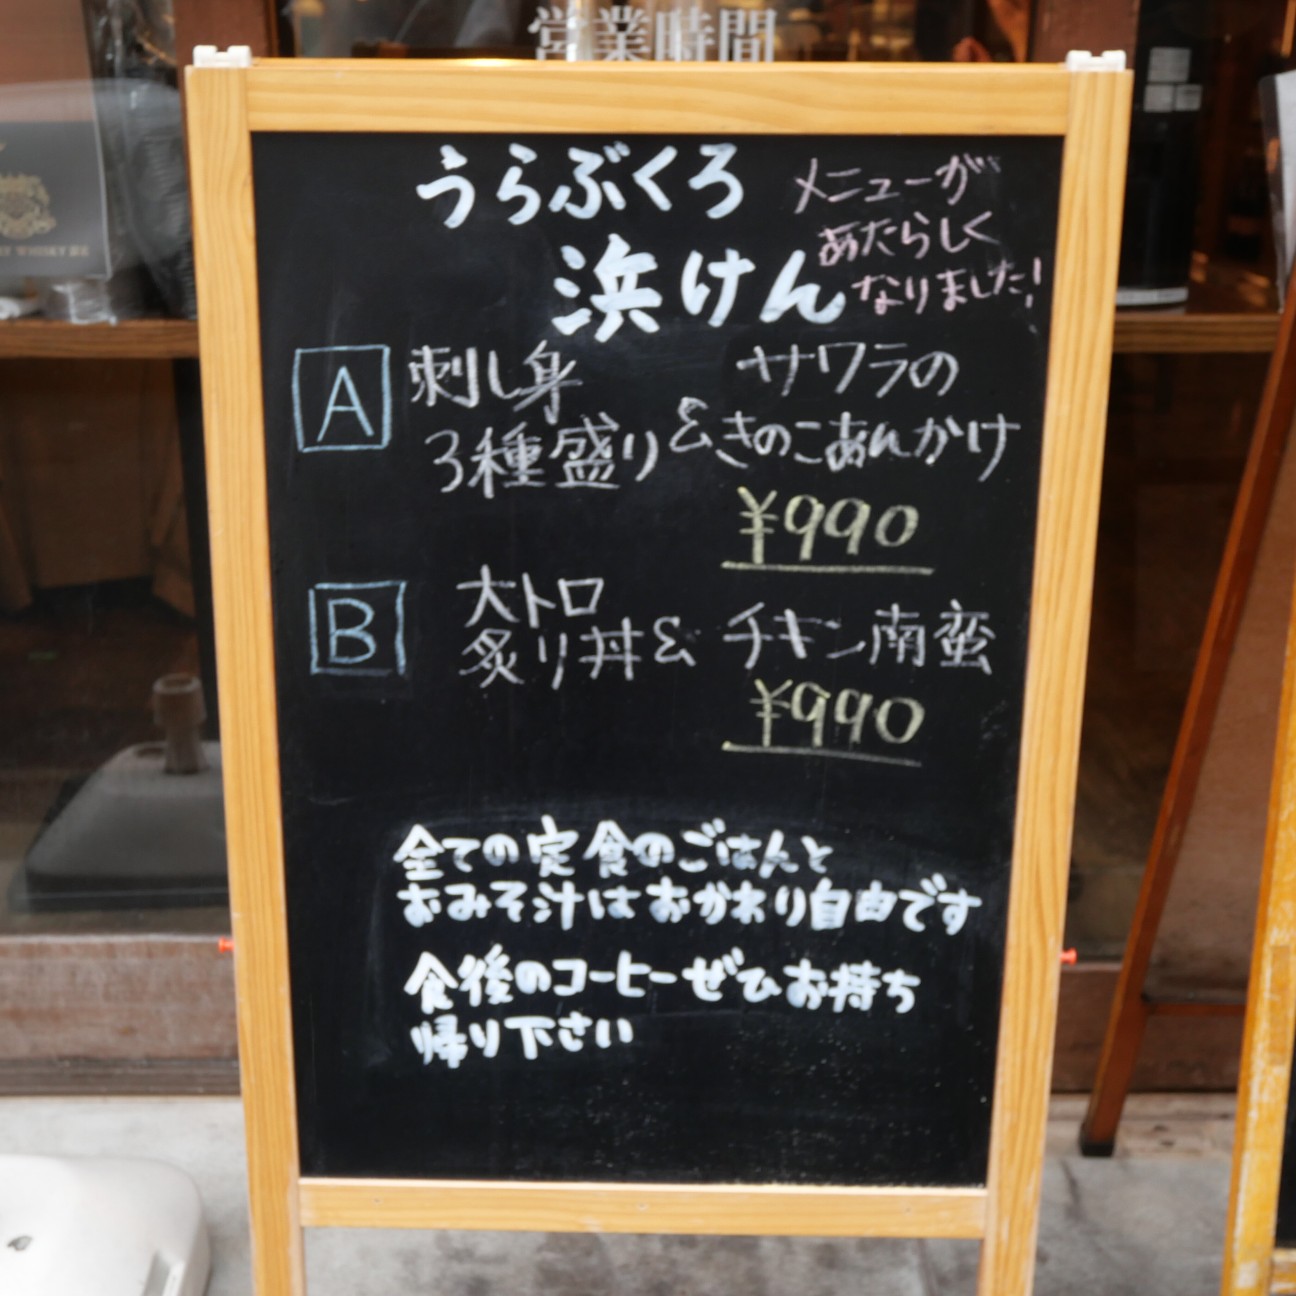 営業時間
うらぶくろ
浜けん
メニューが
あたらしく
なりました!
A
刺し身
3種盛り
&
サワラの
きのこあんかけ
¥990
B
大トロ
炙り丼 & チキン南蛮
¥990
全ての定食のごはんと
おみそ汁はおかわり自由です
食後のコーヒーぜひお持ち
帰り下さい